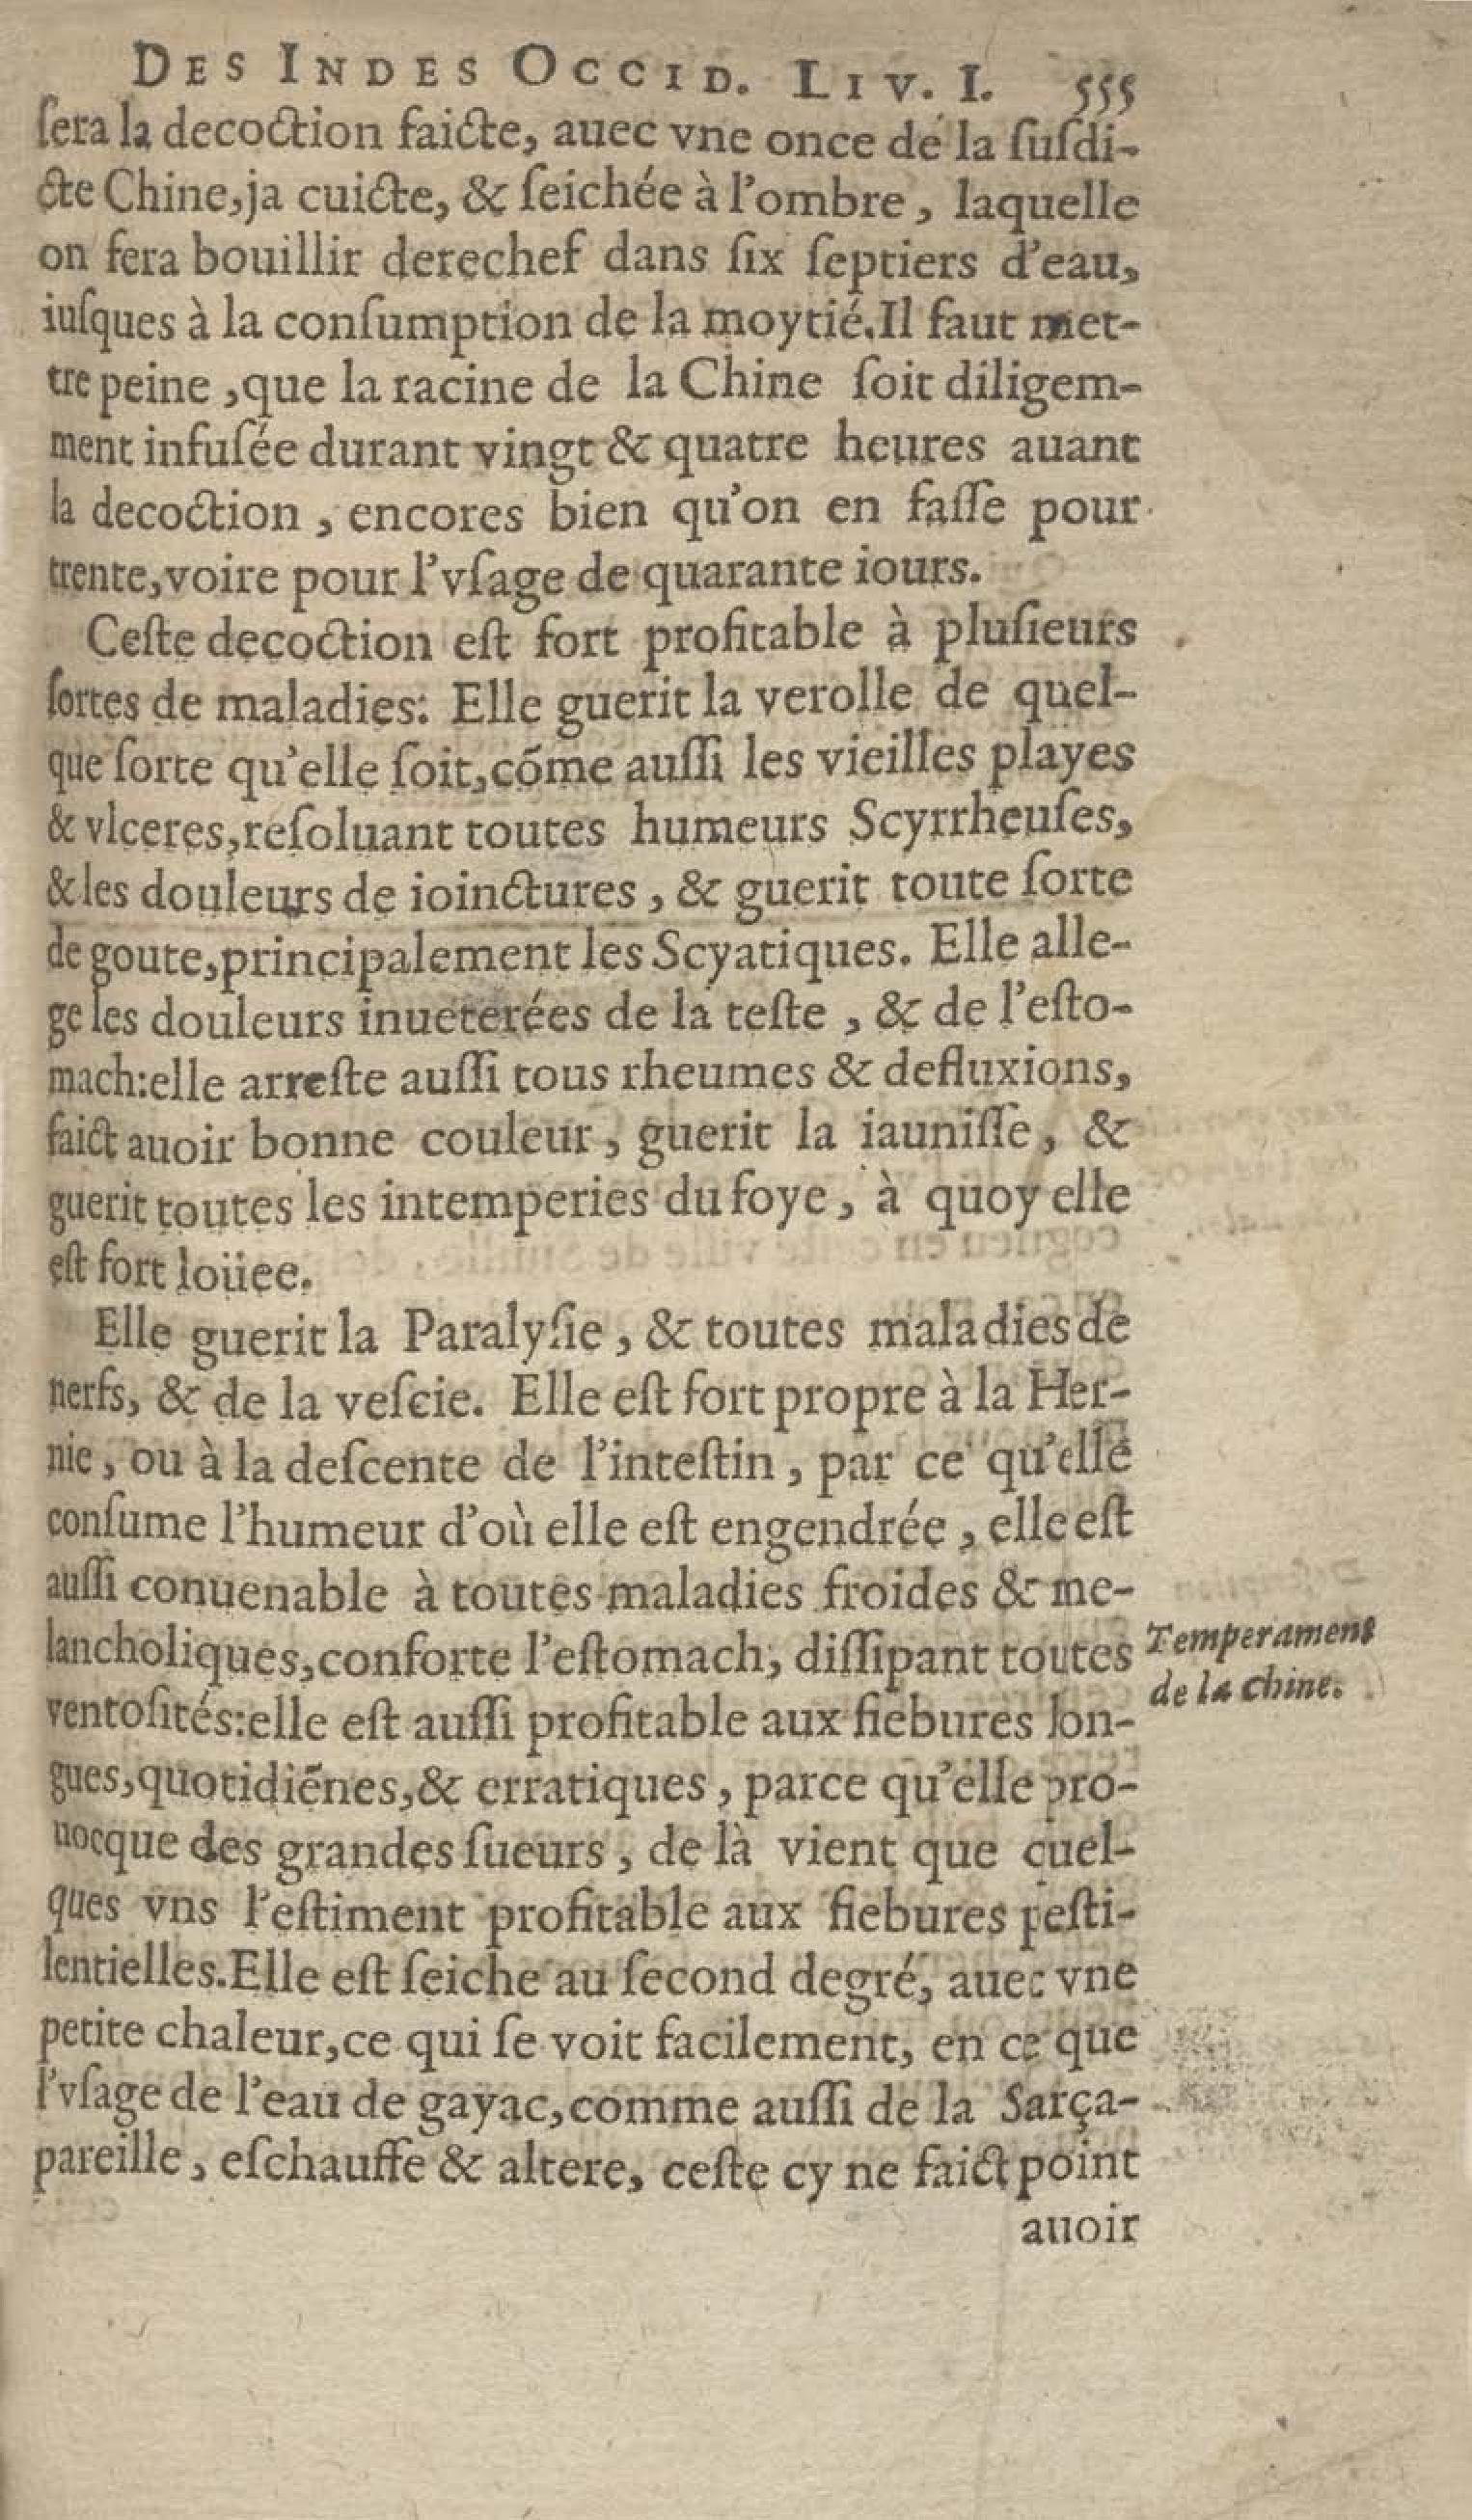 DES INDES OCCID. LIV. I. 555
ſera la decoction faicte, auec vne once de la ſuſdi-
cte Chine,ja cuicte, & ſeichée à l'ombre, laquelle
on fera bouillir derechef dans ſix ſeptiers d'eau,
iuſques à la conſumption de la moytié.Il faut met-
tre peine ,que la racine de la Chine ſoit diligem-
ment infuſée durant vingt & quatre heures auant
la decoction , encores bien qu'on en faſſe pour
trente,voire pour l'vſage de quarante iours.
Ceſte decoction eſt fort profitable à pluſieurs
ſortes de maladies: Elle guerit la verolle de quel-
que ſorte qu'elle ſoit,cõme auſſi les vieilles playes
& vlceres,reſoluant toutes humeurs Scyrrheuſes,
& les douleurs de ioinctures , & guerit toute ſorte
de goute,principalement les Scyatiques. Elle alle-
ge les douleurs inueterées de la teſte , & de l'eſto-
mach:elle arreſte auſſi tous rheumes & defluxions,
faict auoir bonne couleur , guerit la iauniſſe, &
guerit toutes les intemperies du foye, à quoy elle
eſt fort loüee.
Elle guerit la Paralyſie , & toutes maladies de
nerfs, & de la veſcie. Elle eſt fort propre à la Her-
nie , ou à la deſcente de l'inteſtin , par ce qu'elle
conſume l'humeur d'où elle eſt engendrée , elle eſt
auſſi conuenable à toutes maladies froides & me-
lancholiques,conforte l'eſtomach, diſſipant toutes
ventoſités:elle eſt auſſi profitable aux fiebures lon-
gues,quotidiẽnes,& erratiques , parce qu'elle pro-
uocque des grandes ſueurs , de là vient que quel-
ques vns l'eſtiment profitable aux fiebures peſti-
lentielles.Elle eſt ſeiche au ſecond degré, auec vne
petite chaleur,ce qui ſe voit facilement, en ce que
l'vſage de l'eau de gayac,comme auſſi de la Sarça-
pareille , eſchauffe & altere, ceſte cy ne faict point
auoir
Temperament
de la chine.